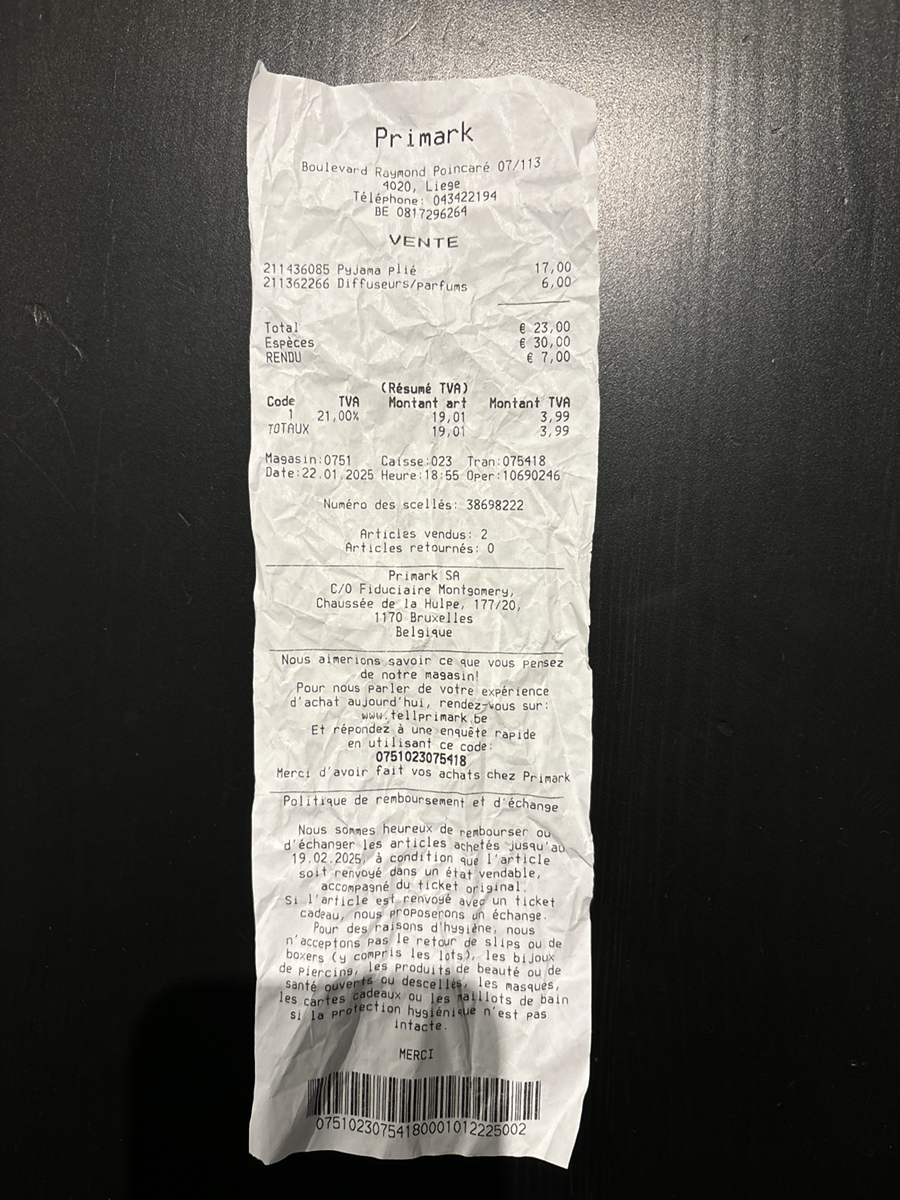 Primark
Boulevard Raymond Poincaré 07/113
4020, Liege
Téléphone: 043422194
BE 0817296264
VENTE
211436085 Pyjama plié 17,00
211362266 Diffuseurs/parfums 6,00
Total € 23,00
Espèces € 30,00
RENDU € 7,00
(Résumé TVA)
Code TVA Montant art Montant TVA
1 21,00% 19,01 3,99
TOTAUX 19,01 3,99
Magasin:0751 Caisse:023 Tran:075418
Date:22.01.2025 Heure:18:55 Oper:10690246
Numéro des scellés: 38698222
Articles vendus: 2
Articles retournés: 0
Primark SA
C/O Fiduciaire Montgomery,
Chaussée de la Hulpe, 177/20,
1170 Bruxelles
Belgique
Nous aimerions savoir ce que vous pensez
de notre magasin!
Pour nous parler de votre expérience
d'achat aujourd'hui, rendez-vous sur:
www.tellprimark.be
Et répondez à une enquête rapide
en utilisant ce code:
0751023075418
Merci d'avoir fait vos achats chez Primark
Politique de remboursement et d'échange
Nous sommes heureux de rembourser ou
d'échanger les articles achetés jusqu'au
19.02.2025, à condition que l'article
soit renvoyé dans un état vendable,
accompagné du ticket original.
Si l'article est renvoyé avec un ticket
cadeau, nous proposerons un échange.
Pour des raisons d'hygiène, nous
n'acceptons pas le retour de slips ou de
boxers (y compris les lots), les bijoux
de piercing, les produits de beauté ou de
santé ouverts ou descellés, les masques,
les cartes cadeaux ou les maillots de bain
si la protection hygiénique n'est pas
intacte.
MERCI
07510230754180001012225002